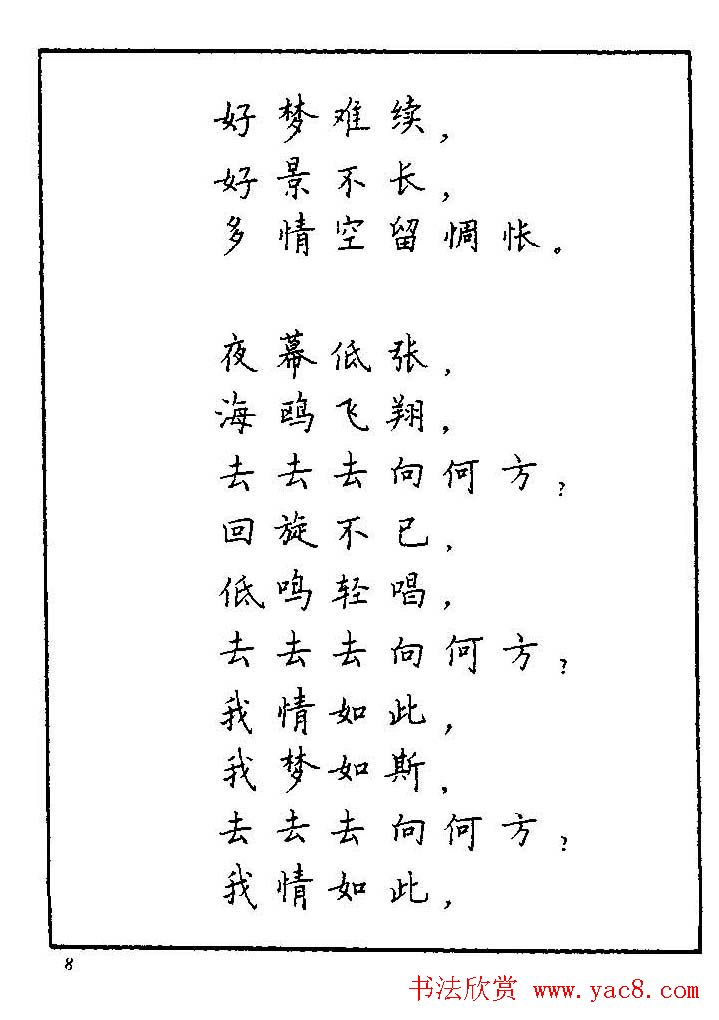 好梦难续，
好景不长，
多情空留惆怅。
夜幕低张，
海鸥飞翔，
去去去向何方？
回旋不已，
低鸣轻唱，
去去去向何方？
我情如此，
我梦如斯，
去去去向何方？
我情如此，
8
书法欣赏 www.yac8.com